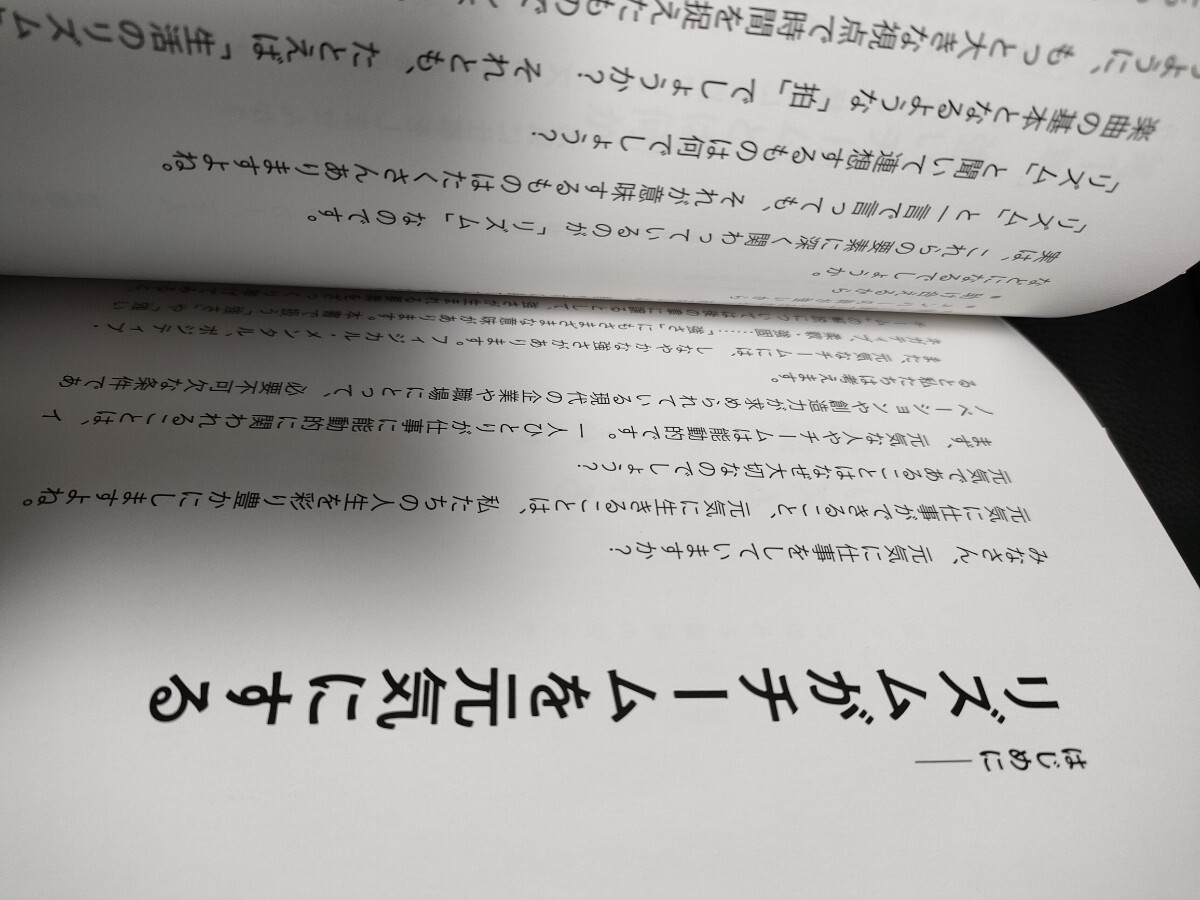 はじめに——
リズムがチームを元気にする
みなさん、元気に仕事をしていますか?
元気に仕事ができること、元気に生きることは、私たちの人生を彩り豊かにしますよね。
元気であることはなぜ大切なのでしょう?
まず、元気な人やチームは能動的です。一人ひとりが仕事に能動的に関われることは、イ
ノベーションや創造力が求められている現代の企業や職場にとって、必要不可欠な条件であ
ると私たちは考えます。
また、元気なチームには、しなやかな強さがあります。フィジカル・メンタル、ポジティブ・
ネガティブ、柔軟・強固……「強さ」にもさまざまな意味があります。本書で扱う「強さ」や「強い
については後の章に譲るとして、強さが生まれる要素をざっくり挙げてみると、
● 助け合えるから
などになるでしょうか。
実は、これらの要素に深く関わっているのが「リズム」なのです。
「リズム」と一言で言っても、それが意味するものはたくさんありますよね。
「リズム」と聞いて連想するものは何でしょう?
楽曲の基本となるような「拍」でしょうか? それとも、たとえば「生活のリズム
ように、もっと大きな視点で時間を捉えたもので